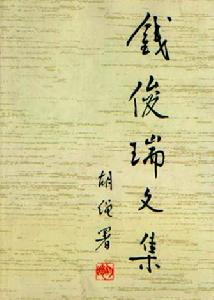 錢俊瑞文集
胡绳署